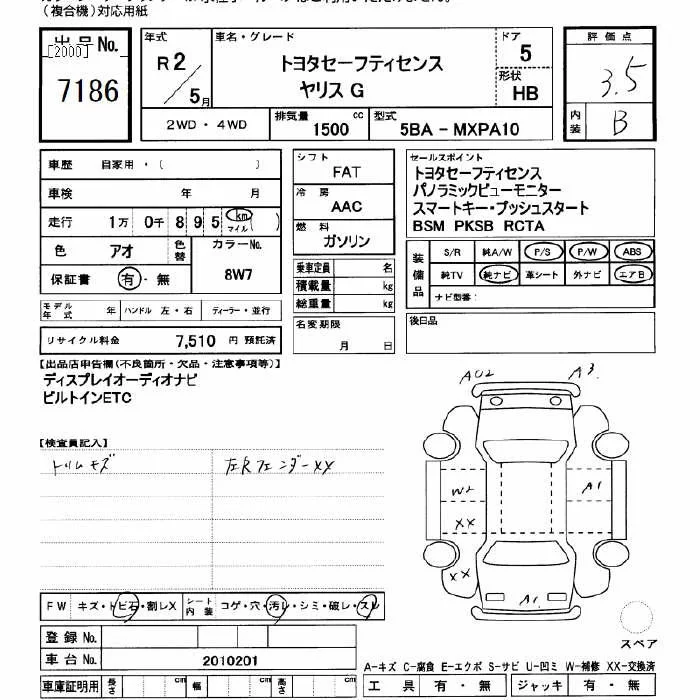 （複合機）対応用紙
出品No.
[2000]
7186
年式
R2/5月
車名・グレード
トヨタセーフティセンス
ヤリス G
ドア
5
形状
HB
評価点
3.5
内装
B
2WD・4WD
排気量
1500 cc
型式
5BA - MXPA10
車歴 自家用・( )
車検 年 月
走行 1万 0千 8 9 5 km マイル ( )
色 アオ
色替
カラーNo.
8W7
保証書 有・無
シフト
FAT
冷房
AAC
燃料
ガソリン
乗車定員 名
積載量 kg
総重量 kg
セールスポイント
トヨタセーフティセンス
パノラミックビューモニター
スマートキー・プッシュスタート
BSM PKSB RCTA
装備品
S/R 純A/W P/S P/W ABS
純TV 純ナビ 革シート 外ナビ エアB
ナビ型番：
モデル年式 年 ハンドル 左・右 ディーラー・並行
リサイクル料金 7,510 円 預託済
名変期限
月 日
後日品
【出品店申告欄(不良箇所・欠品・注意事項等)】
ディスプレイオーディオナビ
ビルトインETC
【検査員記入】
トリムキズ
左Rフェンダー××
A02
A3
W2
A1
XX
XX
A1
FW キズ・トビ石・割レX
シート内装 コゲ・穴・汚レ・シミ・破レ・スレ
スペア
登録 No.
車台 No. 2010201
A-キズ C-腐食 E-エクボ S-サビ U-凹ミ W-補修 XX-交換済
車庫証明用 長さ cm 幅 cm 高さ cm
工具 有・無 ジャッキ 有・無